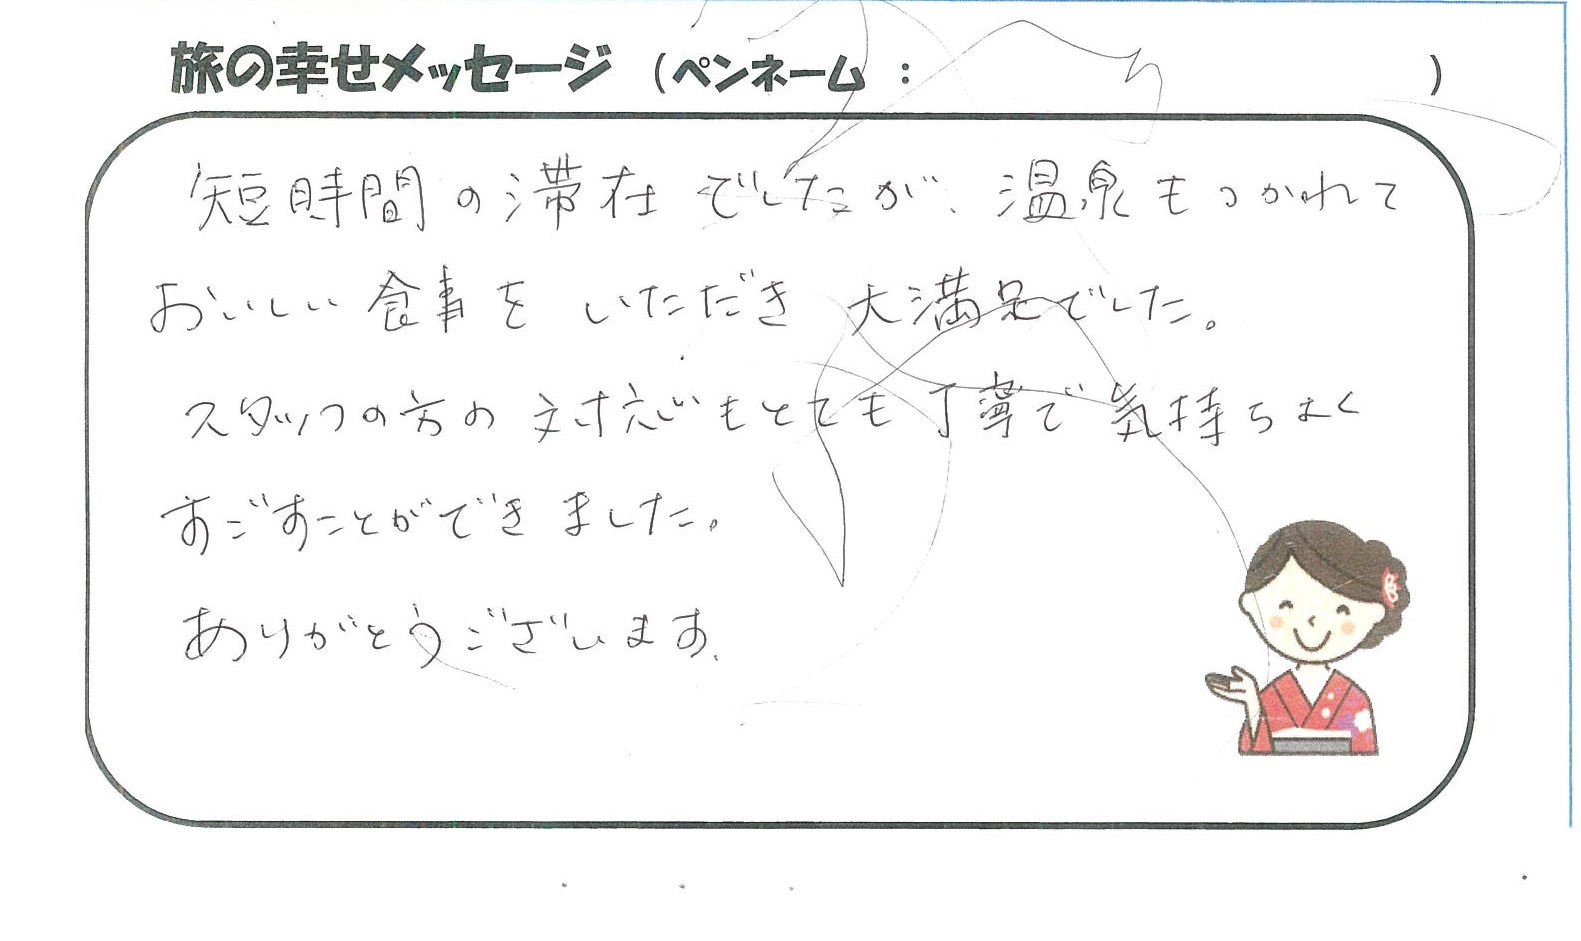 旅の幸せメッセージ (ペンネーム : )
短時間の滞在でしたが、温泉もつかれて
おいしい食事をいただき大満足でした。
スタッフの方の対応もとても丁寧で気持ちよく
すごすことができました。
ありがとうございます。